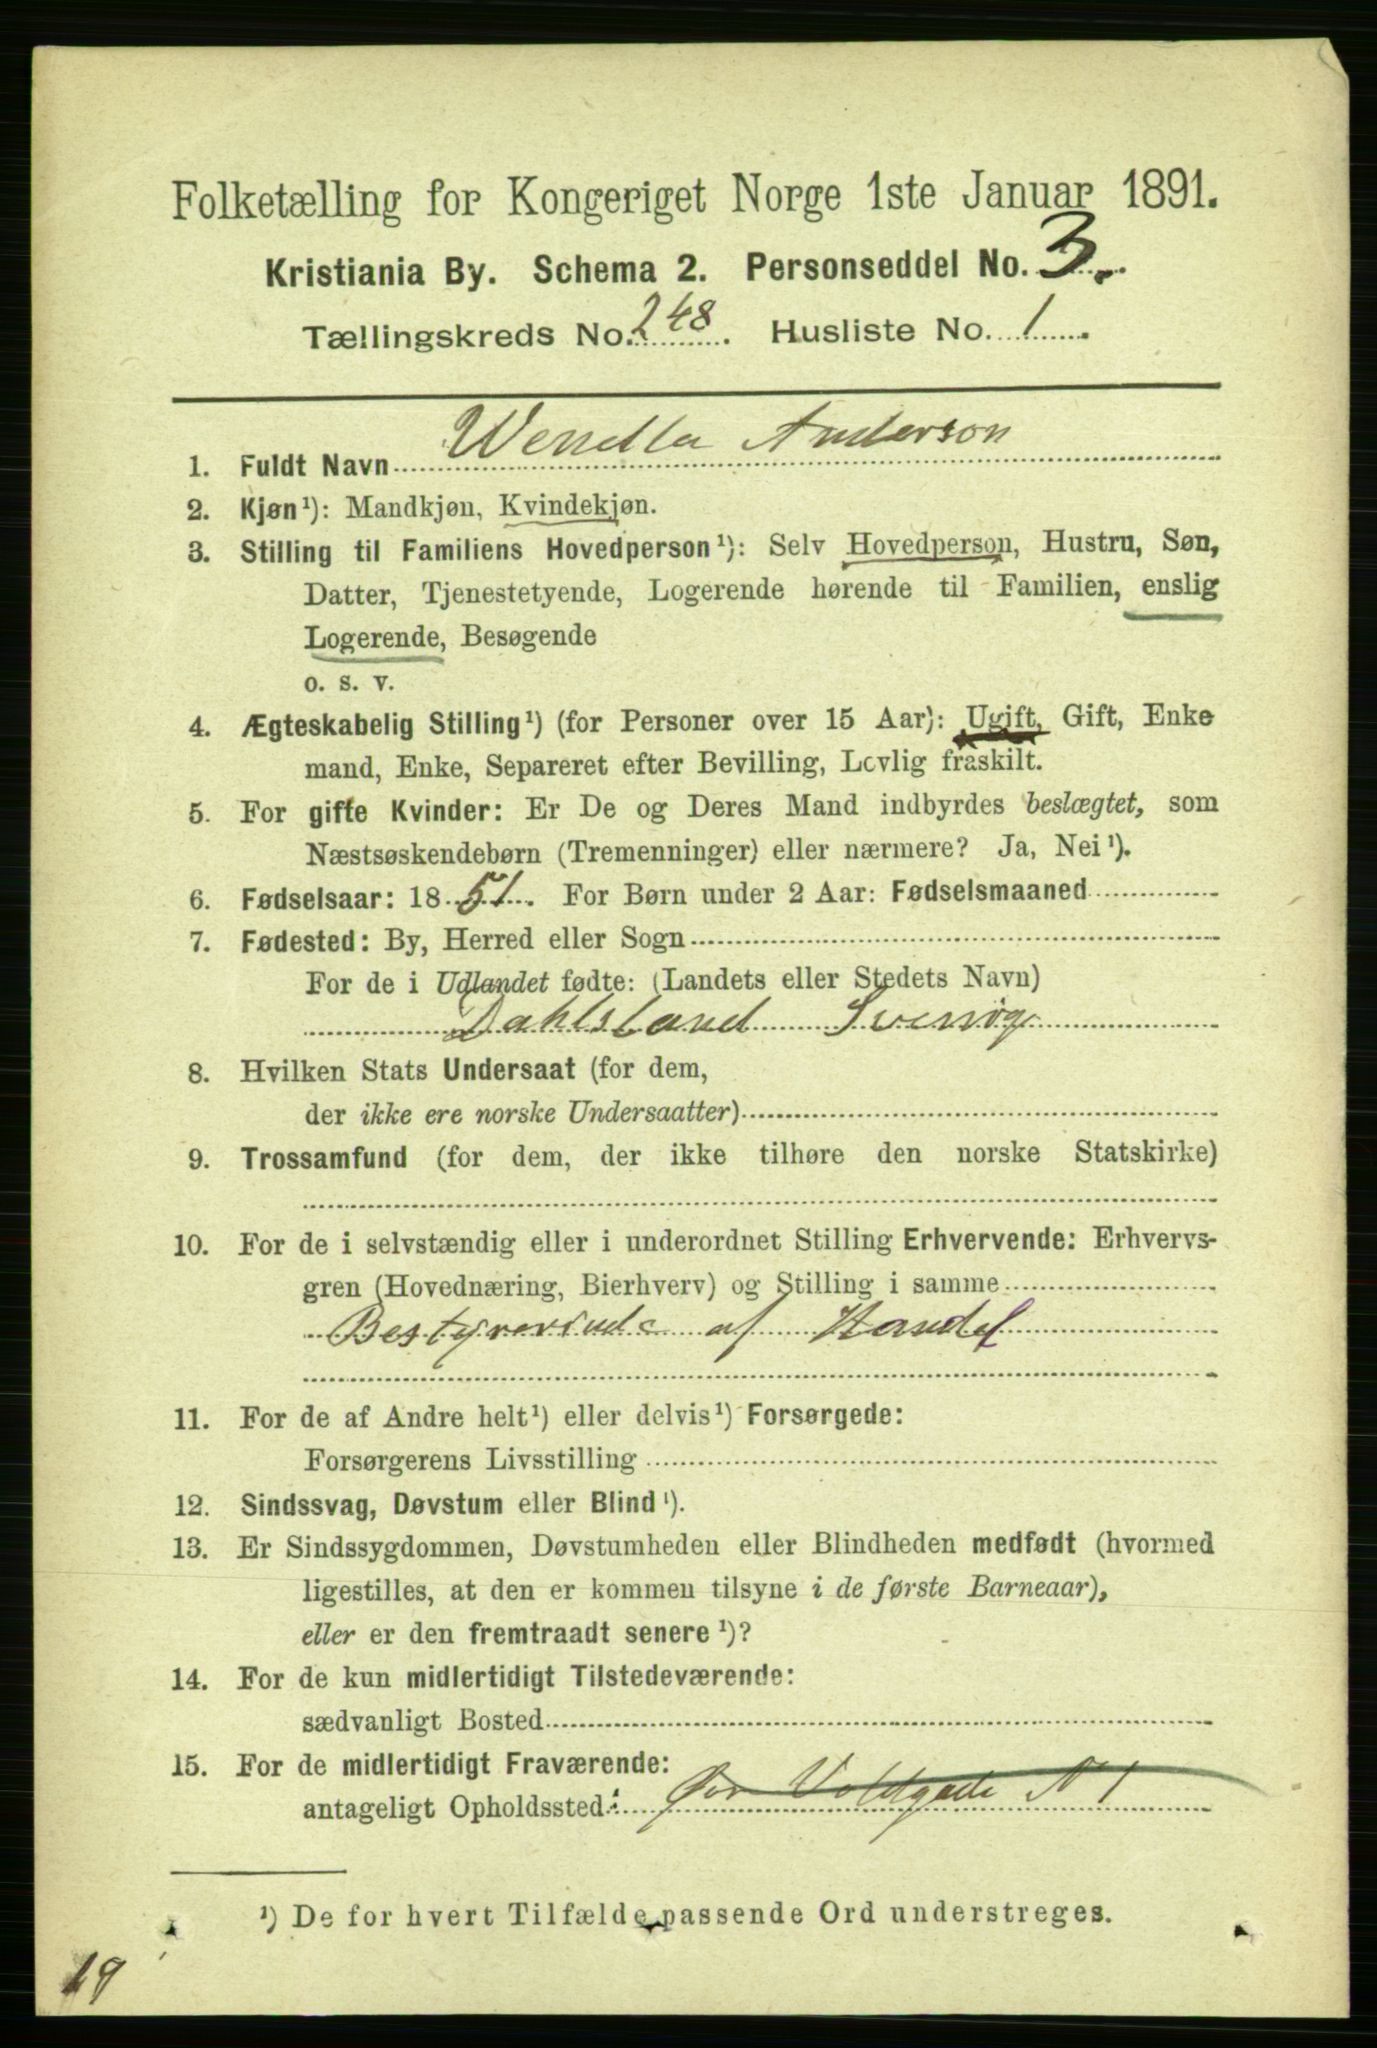 Folketælling for Kongeriget Norge 1ste Januar 1891.
Kristiania By. Schema 2. Personseddel No. 3.
Tællingskreds No. 248. Husliste No. 1.
1. Fuldt Navn Wenella Anderson
2. Kjøn¹): Mandkjøn, Kvindekjøn.
3. Stilling til Familiens Hovedperson¹): Selv Hovedperson, Hustru, Søn,
Datter, Tjenestetyende, Logerende hørende til Familien, enslig
Logerende, Besøgende
o. s. v.
4. Ægteskabelig Stilling¹) (for Personer over 15 Aar): Ugift, Gift, Enke
mand, Enke, Separeret efter Bevilling, Lovlig fraskilt.
5. For gifte Kvinder: Er De og Deres Mand indbyrdes beslægtet, som
Næstsøskendebørn (Tremenninger) eller nærmere? Ja, Nei¹).
6. Fødselsaar: 1851. For Børn under 2 Aar: Fødselsmaaned
7. Fødested: By, Herred eller Sogn
For de i Udlandet fødte: (Landets eller Stedets Navn)
Dahlsland Sverrig
8. Hvilken Stats Undersaat (for dem,
der ikke ere norske Undersaatter)
9. Trossamfund (for dem, der ikke tilhøre den norske Statskirke)
10. For de i selvstændig eller i underordnet Stilling Erhvervende: Erhvervs-
gren (Hovednæring, Bierhverv) og Stilling i samme
Bestyrerinde af Handel
11. For de af Andre helt¹) eller delvis¹) Forsørgede:
Forsørgerens Livsstilling
12. Sindssvag, Døvstum eller Blind¹).
13. Er Sindssygdommen, Døvstumheden eller Blindheden medfødt (hvormed
ligestilles, at den er kommen tilsyne i de første Barneaar),
eller er den fremtraadt senere¹)?
14. For de kun midlertidigt Tilstedeværende:
sædvanligt Bosted
15. For de midlertidigt Fraværende:
antageligt Opholdssted: Voldgade N 1
¹) De for hvert Tilfælde passende Ord understreges.
19